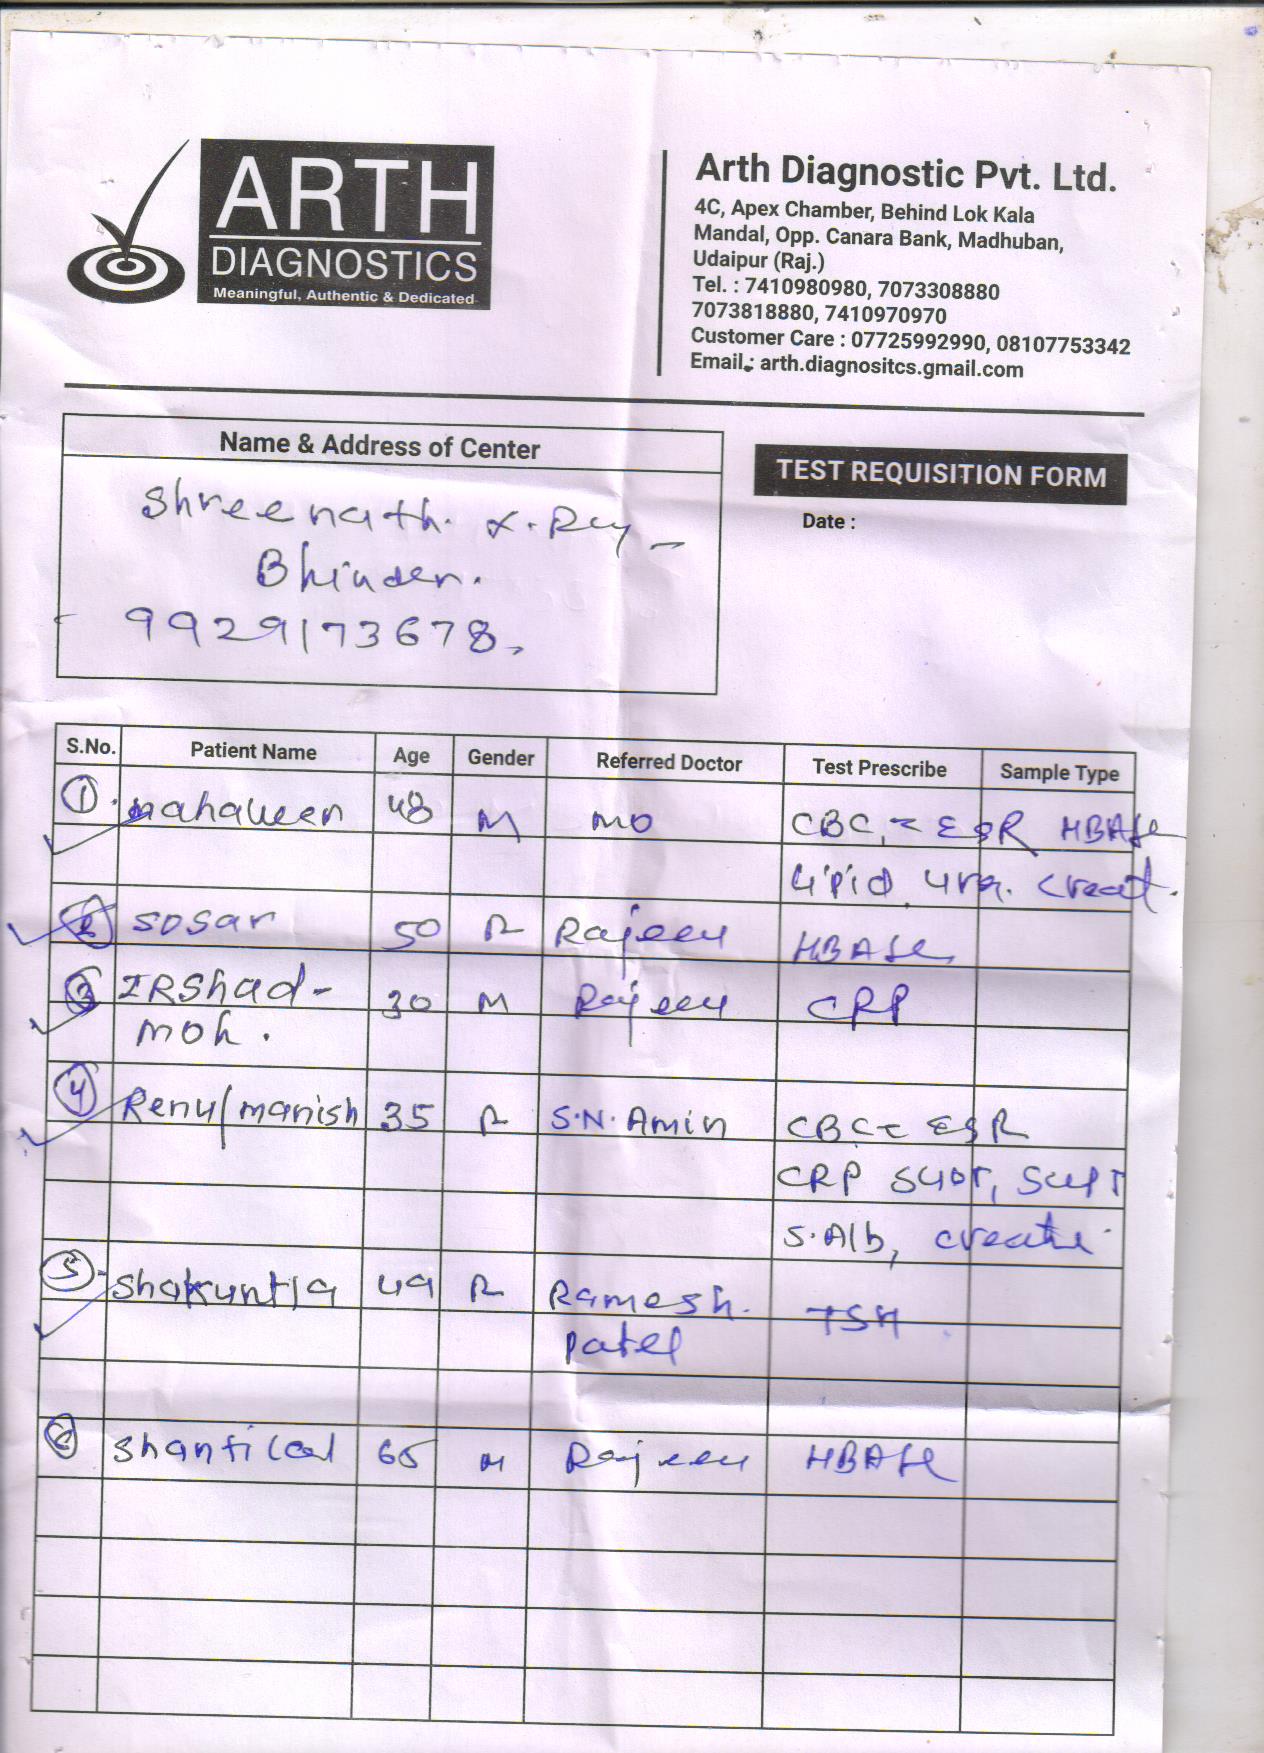 ARTH
DIAGNOSTICS
Meaningful, Authentic & Dedicated
Arth Diagnostic Pvt. Ltd.
4C, Apex Chamber, Behind Lok Kala
Mandal, Opp. Canara Bank, Madhuban,
Udaipur (Raj.)
Tel. : 7410980980, 7073308880
7073818880, 7410970970
Customer Care : 07725992990, 08107753342
Email : arth.diagnositcs.gmail.com
Name & Address of Center
Shreenath. X-Ray -
Bhinder.
9929173678.
TEST REQUISITION FORM
Date :
S.No. Patient Name Age Gender Referred Doctor Test Prescribe Sample Type
1. mahaveer 48 M MO CBC, ESR HBA1c
Lipid, ura. creat.
2 Sosar 50 F Rajeev HBA1c
3 IRShad- 30 M Rajeev CRP
moh.
4 Renu/manish 35 F S.N. Amin CBC ESR
CRP SGOT, SGPT
S.Alb, creatie
5. Shakuntla 49 F Ramesh. TSH
patel
6 Shantilal 65 M Rajeev HBA1c